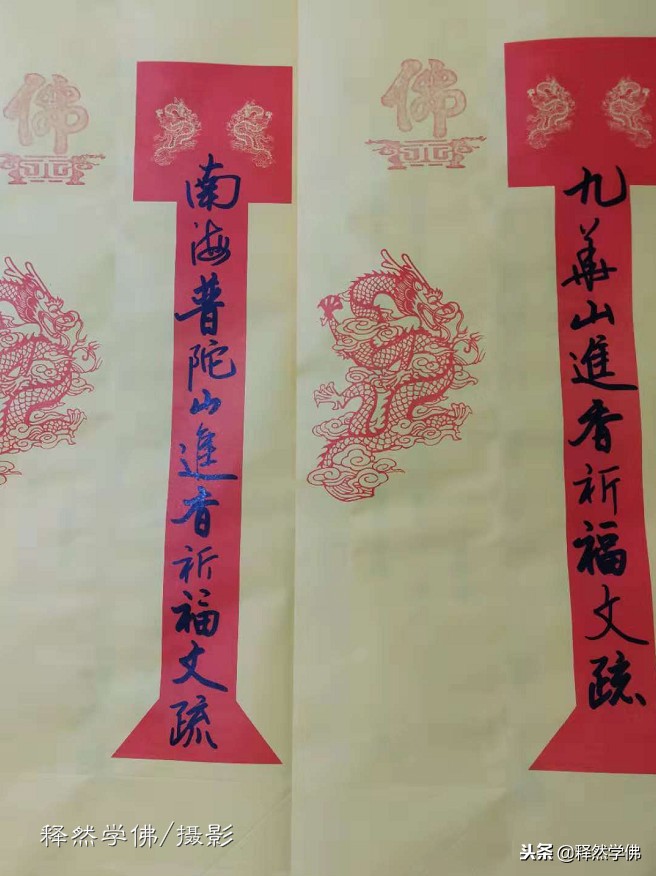 佛
南海普陀山進香祈福文疏
佛
九華山進香祈福文疏
释然学佛/摄影
头条 @释然学佛